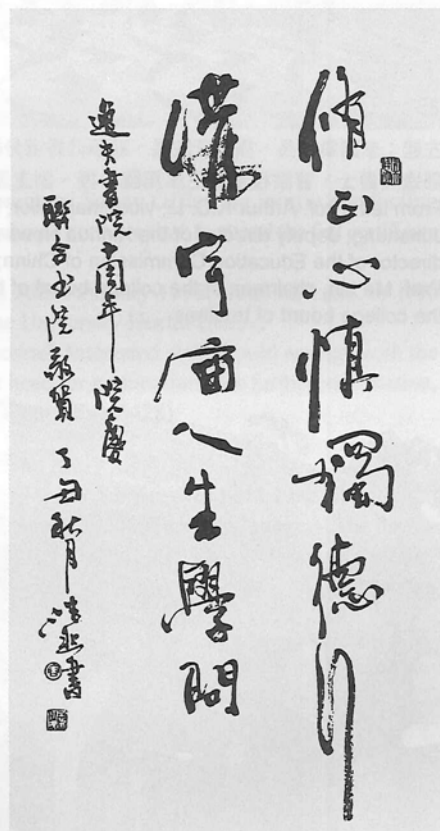 脩正心慎獨德行
講宇宙人生學問
逸夫書院周年院慶
聯合書院敬賀 丁丑秋月 書